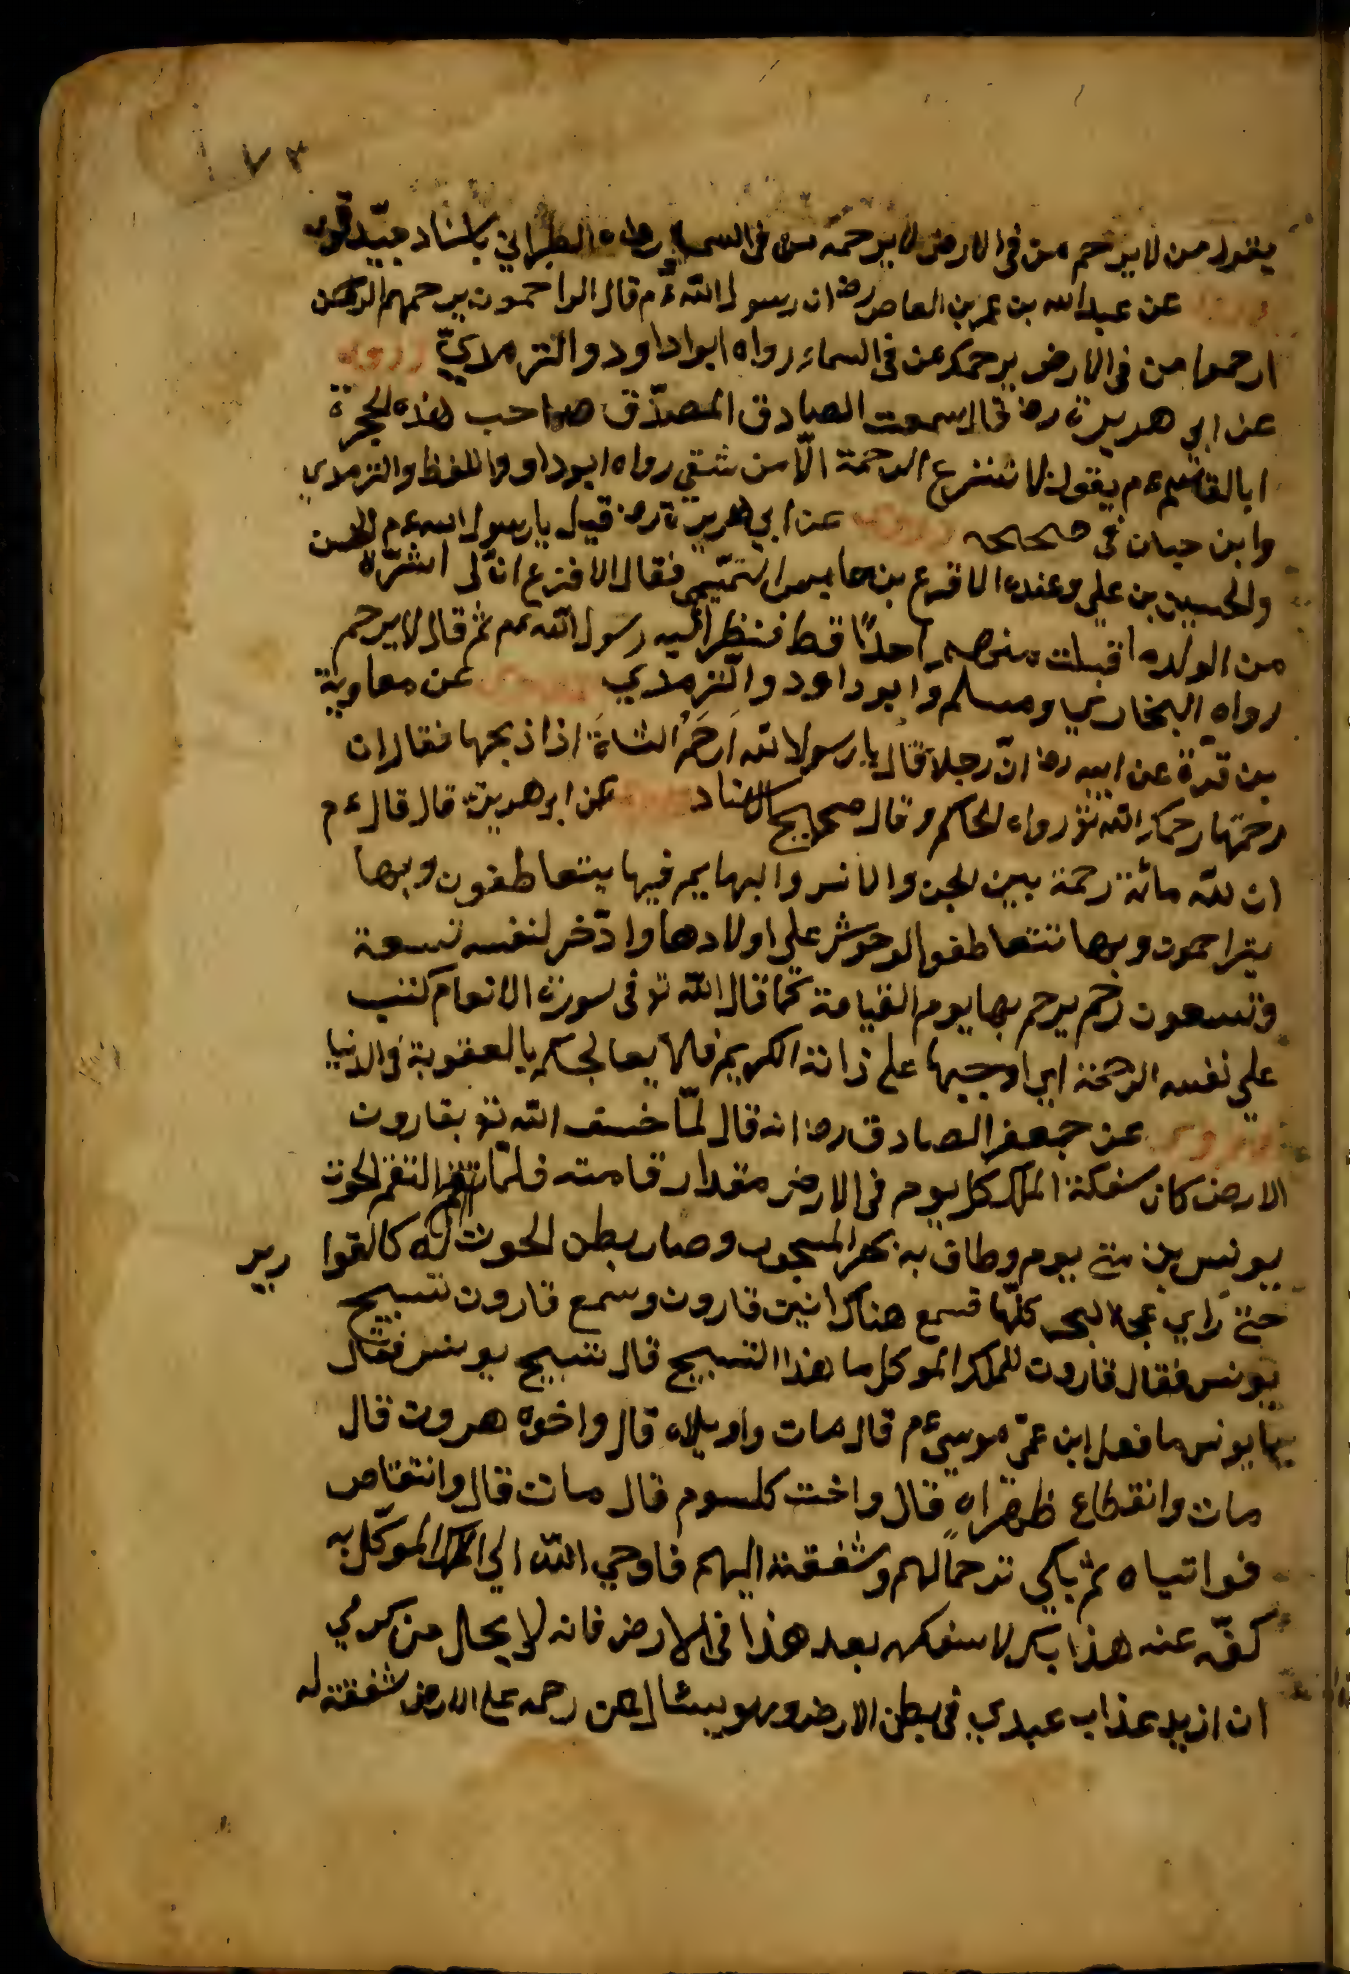 ١٧٣
يقول من لا يرحم من فى الارض لا يرحمه من فى السماء رواه الطبراني باسناد جيّد قوى
عن عبد الله بن عمر بن العاص رض ان رسول الله ءم قال الراحمون يرحمهم الرحمن
ارحموا من فى الارض يرحمكم من فى السماء رواه ابوا داود والترمذيّ وروى
عن ابي هريرة رض قال سمعت الصادق المصدّق صاحب هذه الحجرة
ابا القاسم ءم يقول لا تنزع الرحمة الّا من شقي رواه ابو داود واللفظ والترمذي
وابن حبان فى صحيحه وروى عن ابي هريرة رض قيل يا رسول الله ءم الحسن
والحسين بن علي وعنده الاقرع بن حابس التميمي فقال الاقرع انّ لى عشرة
من الولد ما قبلت منهم احدًا قط فنظر اليه رسول الله عم ثم قال لا يرحم
رواه البخاري ومسلم وابو داود والترمذي عن معاوية
بن قرّة عن ابيه رض انّ رجلا قال يا رسول الله ارحم الشاة اذا ذبحها فقال ان
رحمتها رحمك الله تؤ رواه الحاكم وقال صحيح الاسناد عن ابو هريرة قال قال ءم
ان لله مائة رحمة بين الجن والانس والبهايم فيها يتعاطفون وبها
يتراحمون وبها تتعاطفوا الوحوش على اولادها وادّخر لنفسه تسعة
وتسعون رحم يرحم بها يوم القيامة كما قال الله تؤ فى سورة الانعام كتب
على نفسه الرحمة اي اوجبها على ذاته الكريم فلا يعالجكم بالعقوبة فى الدنيا
وروى عن جمعفر الصادق رض انه قال لمّا خسف الله تؤ بقارون
الارض كان سفكة الملك كل يوم فى الارض مقدار قامته فلمّا التقم الحوت
يونس بن متى يوم وطاف به بحر المسجوب وصار بطن الحوت له كالقوا رير
حتى راي عجا البحر كلّها فسمع هناك انين قارون وسمع قارون تسبيح
يونس فقال قارون للملك الموكل ما هذا التسبيح قال تسبيح يونس فقال
يا يونس ما فعل ابن عمّي موسى ءم قال مات واويلاه قال واخوه هرون قال
مات وانقطاع ظهراه قال واخت كلسوم قال مات قال وانتقاص
فواتياه ثم بكي ترحمًا لهم وشفقة اليهم فاوحي الله الي الملك الموكل به
كفّ عنه هذا بكر لا سفكه بعد هذا فى الارض فانه لا يحال من كرمي
ان ازيد عذاب عبدي فى بطن الارض وهو يسئال عن رحمه على الارض شفقة له